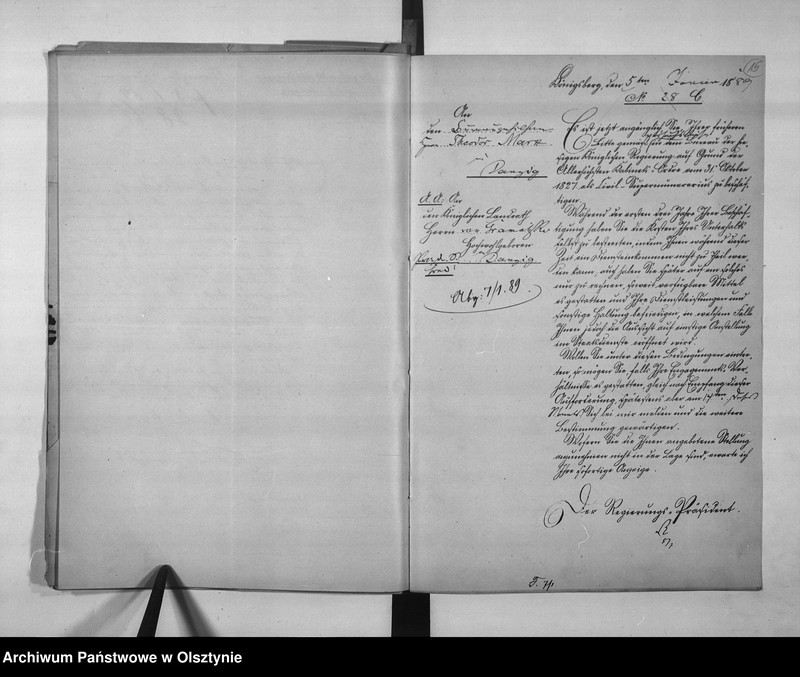 16
Königsberg, den 5ten Januar 1889
No 28 C
An
den Bureaugehilfen
Herrn Theodor Marx
in
Danzig
Es ist jetzt angänglich Sie, Ihrer früheren
Bitte gemäß, im Bureau der hie-
sigen Königlichen Regierung auf Grund der
Allerhöchsten Kabinets-Ordre vom 31 Oktober
1827 als Civil-Supernumerarius zu beschäf-
tigen.
Während der ersten drei Jahre Ihrer Beschäf-
tigung haben Sie die Kosten Ihres Unterhalts
selbst zu bestreiten, indem Ihnen während dieser
Zeit ein Diensteinkommen nicht zu Theil wer-
den kann, auch haben Sie später auf ein solches
nur zu rechnen, soweit verfügbare Mittel
es gestatten und Ihre Dienstleistungen und
sonstige Haltung befriedigen, in welchem Falle
Ihnen jedoch die Aussicht auf einstige Anstellung
im Staatsdienste eröffnet wird.
Wollen Sie unter diesen Bedingungen eintre-
ten, so mögen Sie, falls Ihre Engagements-Ver-
hältnisse es gestatten, gleich nach Empfang dieser
Aufforderung, spätestens aber am 14ten dieses
Monats sich bei mir melden und die weitere
Bestimmung gewärtigen.
Wofern Sie die Ihnen angebotene Stellung
anzunehmen nicht in der Lage sind, erwarte ich
Ihre sofortige Anzeige.
Der Regierungs-Präsident.
An
den Königlichen Landrath
Herrn von Gramatzki
Hochwohlgeboren
Danzig
Abg: 7/1. 89
Archiwum Państwowe w Olsztynie